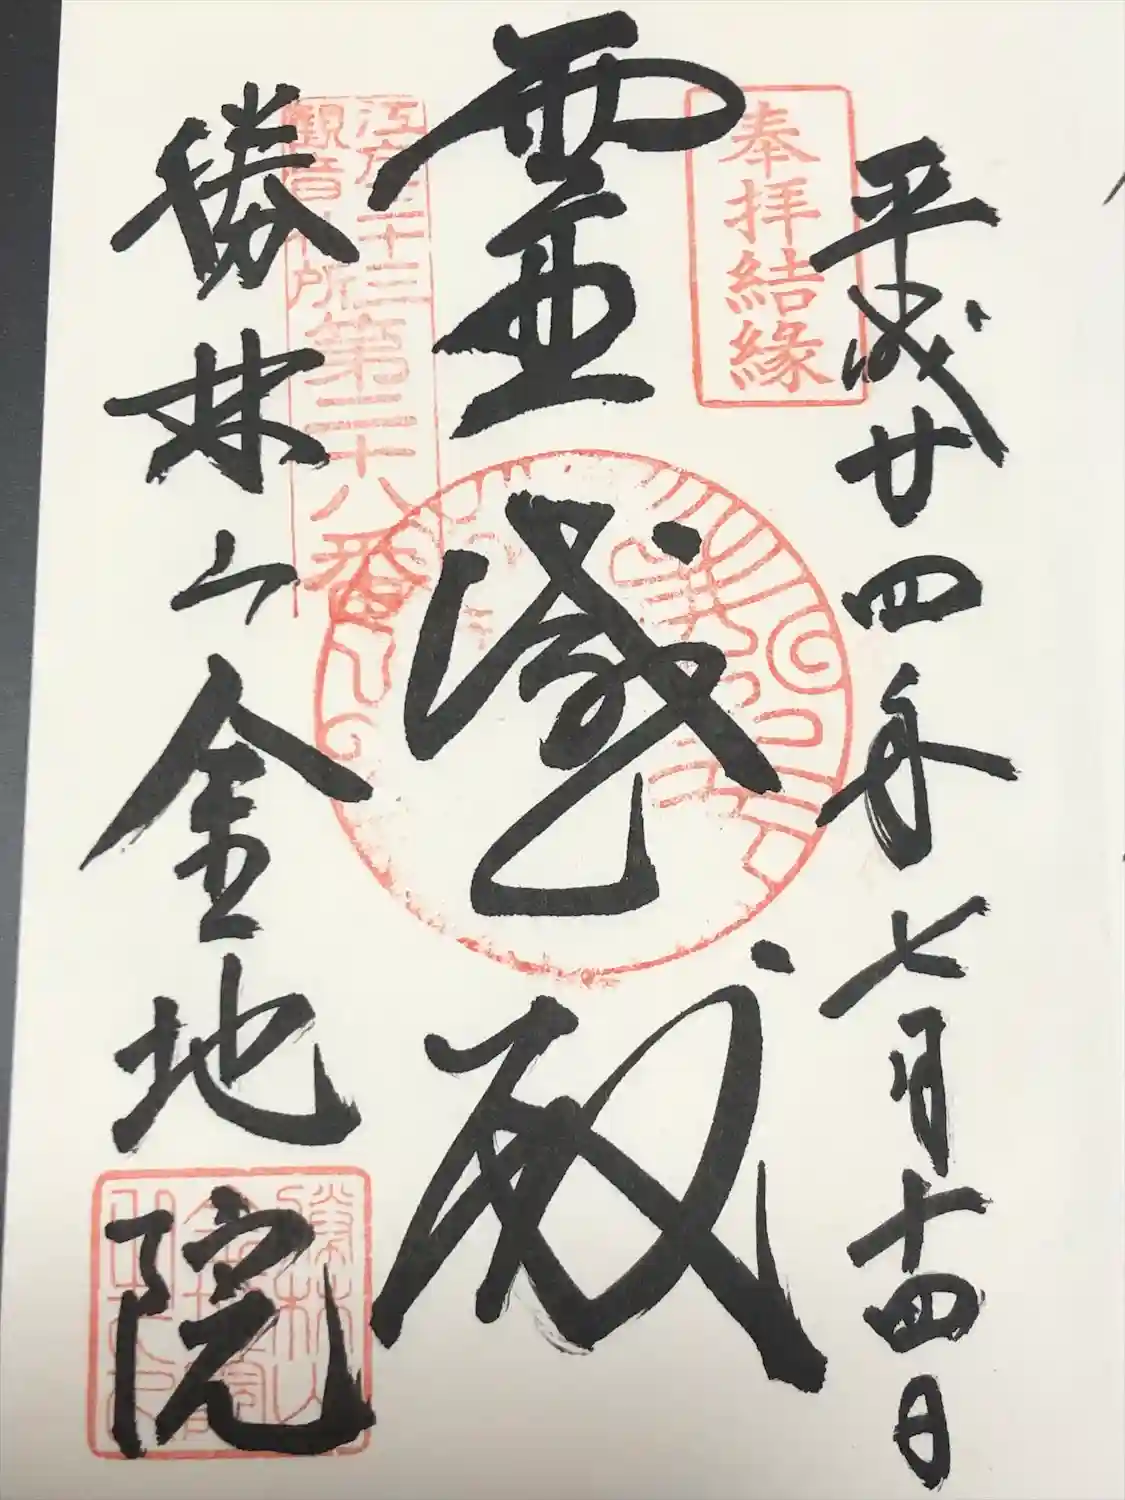 奉拝結縁
平成廿四年七月十四日
霊感殿
江戸三十三
観音札所
第二十八番
勝林山金地院